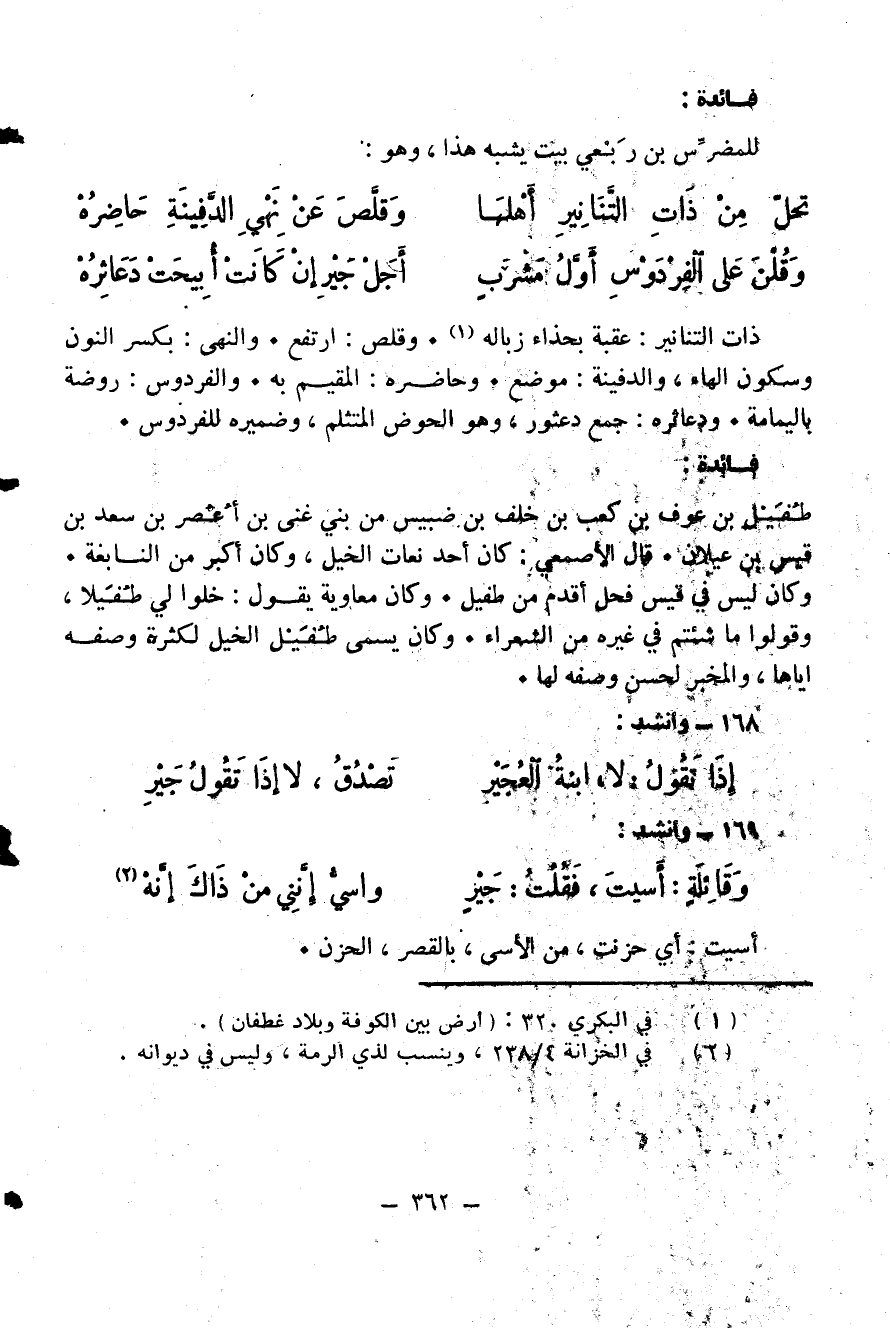 فــائدة :
للمضرّس بن رَبْعي بيت يشبه هذا ، وهو :
تحلّ مِنْ ذَاتِ التَّنَانِيرِ أَهْلهَـا وَقلَّصَ عَنْ نِهْيِ الدَّفِينَةِ حَاضِرُهْ
وَقُلْنَ عَلى الْفِرْدَوْسِ أَوَّلُ مَشْرَبٍ أَجَلْ جَيْرِ إِنْ كَانَتْ أُبِيحَتْ دَعَائِرُهْ
ذات التنانير : عقبة بحذاء زباله (١) • وقلص : ارتفع • والنهى : بكسر النون
وسكون الهاء ، والدفينة : موضع • وحاضــره : المقيــم به • والفردوس : روضة
باليمامة • ودعائره : جمع دعثور ، وهو الحوض المتثلم ، وضميره للفردوس •
فــائدة :
طُفَيْل بن عوف بن كعب بن خلف بن ضبيس من بني غنى بن أعْصر بن سعد بن
قيس بن عيلان • قال الأصمعي : كان أحد نعات الخيل ، وكان أكبر من النــابغة •
وكان ليس في قيس فحل أقدم من طفيل • وكان معاوية يقــول : خلوا لي طُفَيلا ،
وقولوا ما شئتم في غيره من الشعراء • وكان يسمى طُفَيْل الخيل لكثرة وصفــه
اياها ، والمخبر لحسن وصفه لها •
١٦٨ – وأنشد :
إِذَا تَقُوْلُ : لا ، ابنةُ الْعُجَيْرِ تَصْدُقُ ، لا إِذَا تَقُولُ جَيْرِ
١٦٩ – وأنشد :
وَقَائِلَةٍ : أَسيتَ ، فَقُلْتُ : جَيْرٍ واسيٌّ إِنَّنِي منْ ذَاكَ إِنَّهْ (٢)
أسيت : أي حزنت ، من الأسى ، بالقصر ، الحزن •
(١) في البكري ٣٢٠ : (أرض بين الكوفة وبلاد غطفان) .
(٢) في الخزانة ٢٣٨/٤ ، وينسب لذي الرمة ، وليس في ديوانه .
– ٣٦٢ –